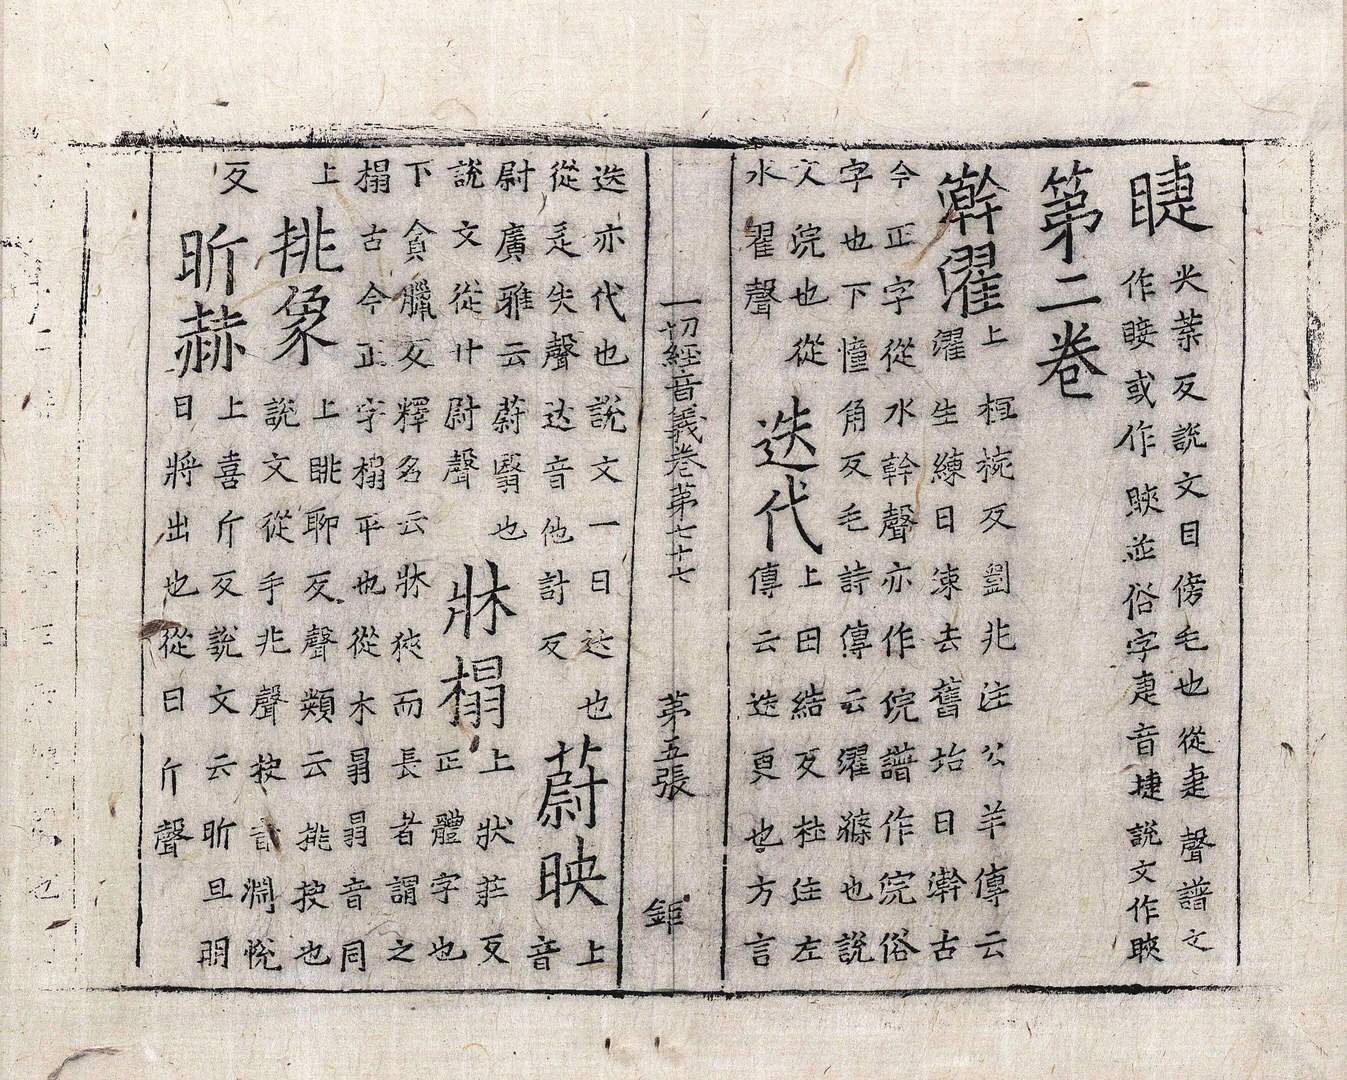 睫尖葉反說文目傍毛也從疌聲譜文
作䀹或作䀹並俗字疌音捷說文作䀹
第二卷
澣濯上桓椀反劉兆注公羊傳云
濯生練曰湅去舊垢曰澣古
今正字從水幹聲亦作浣譜作浣俗
字也下憧角反毛詩傳云濯滌也說
文浣也從
水翟聲
迭代上田結反杜注左
傳云迭更也方言
迭亦代也說文一曰达也
從辵失聲达音他計反
蔚映上音
尉廣雅云蔚翳也
說文從廾尉聲
牀榻上狀莊反
正體字也
下貪臘反釋名云牀狹而長者謂之
榻古今正字榻平也從木𦐇𦐇音同
上
反
挑象上眺聊反聲類云挑抉也
說文從手兆聲抉音淵悅
昕赫上喜斤反說文云昕旦明
日將出也從日斤聲
一切經音義卷第七十七 第五張 鉅